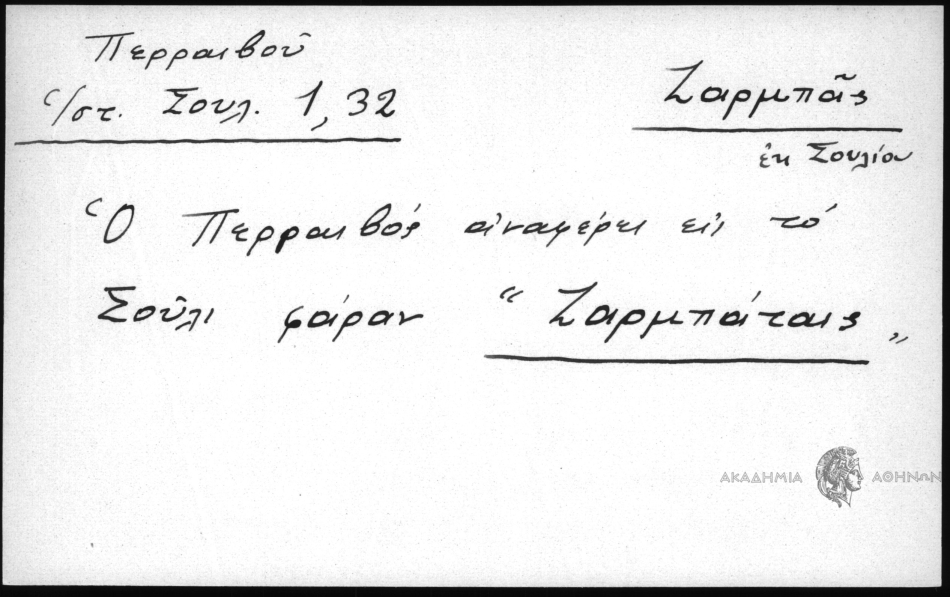 Περραιβοῦ
Ἱστ. Σουλ. 1, 32
Ζαρμπᾶς
ἐκ Σουλίου
Ὁ Περραιβός ἀναφέρει εἰς τό
Σοῦλι φάραν “Ζαρμπάταις„
ΑΚΑΔΗΜΙΑ ΑΘΗΝΩΝ